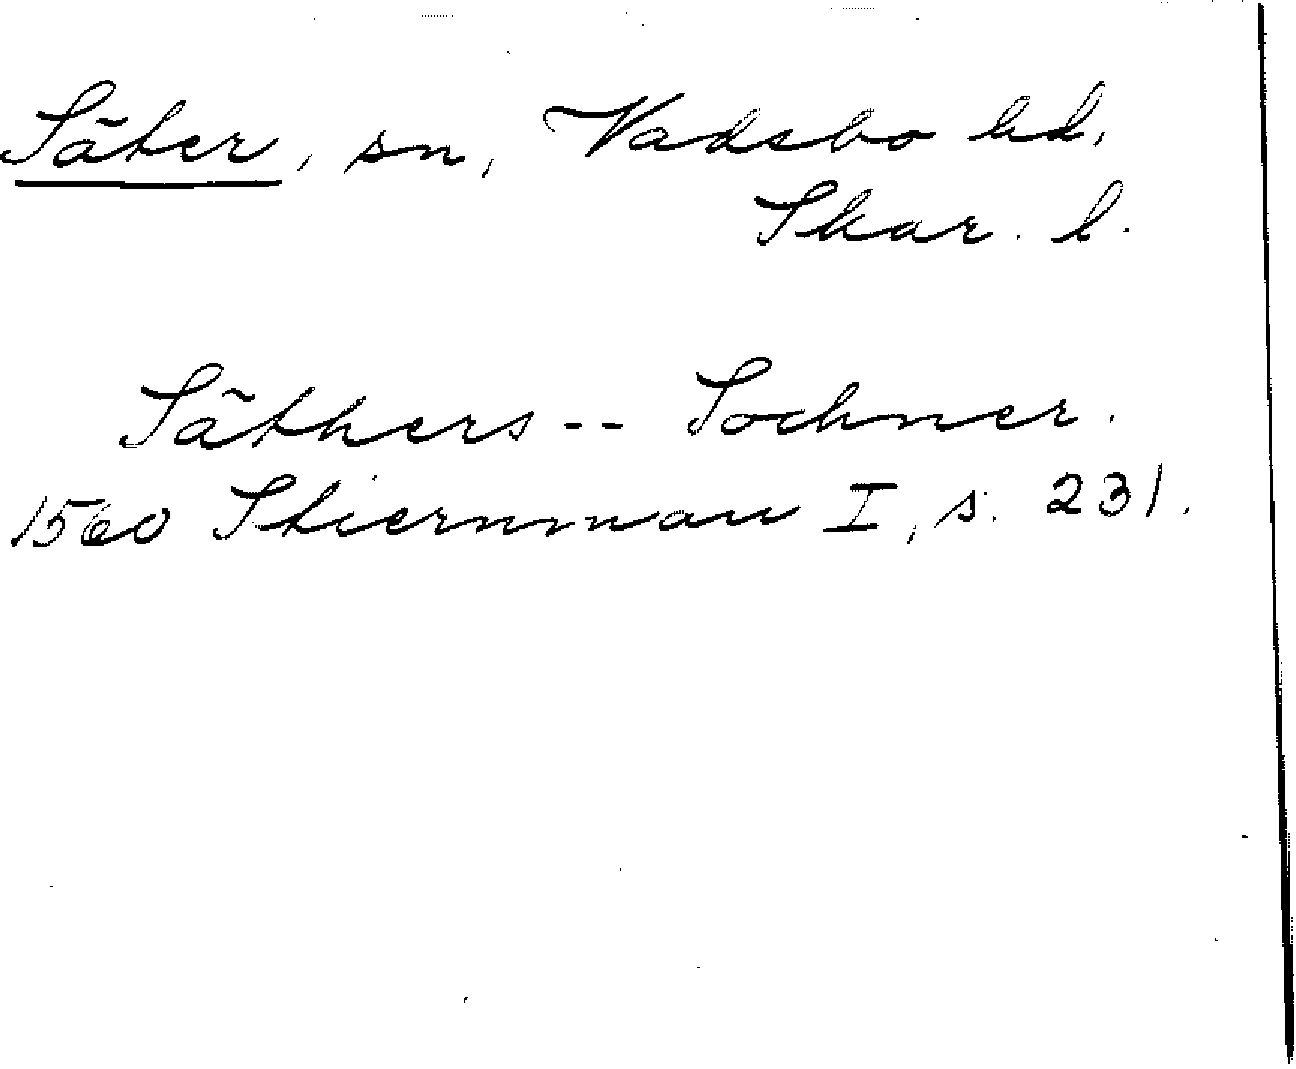 Säter, sn, Vadsbo hd,
Skar. l.
Säthers-- Sochner.
1560 Stiernman I, s. 231.